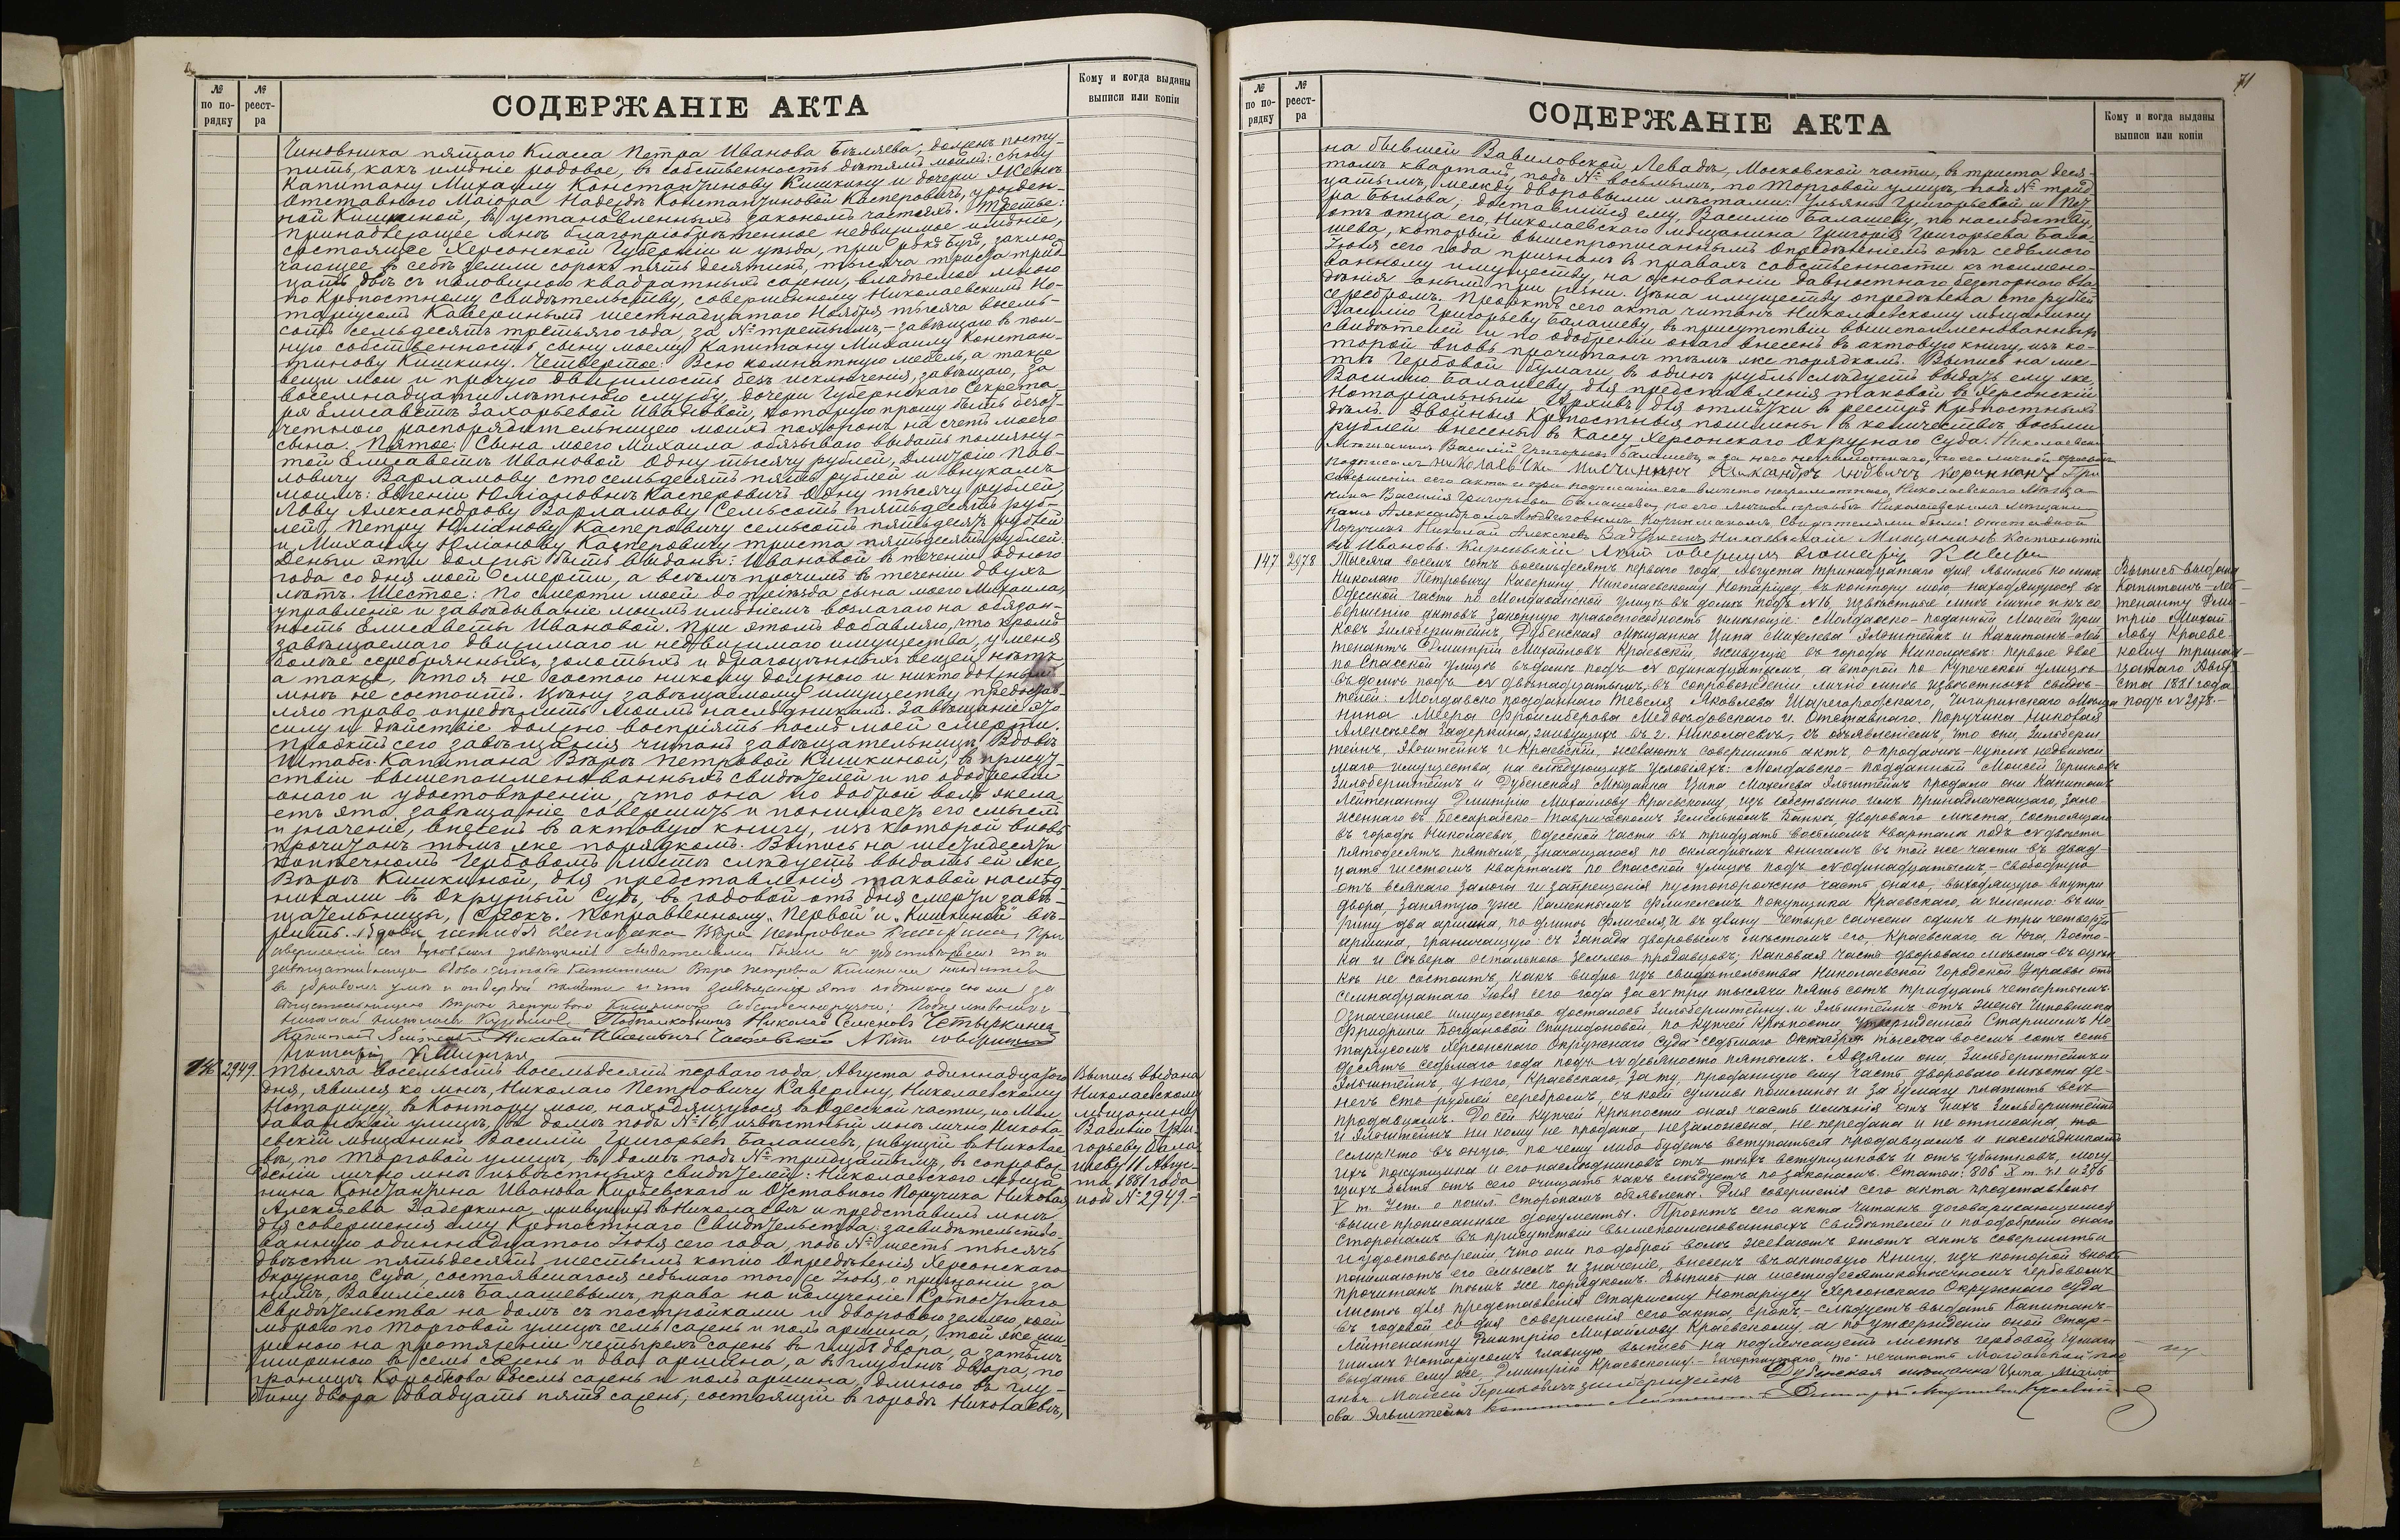 № по порядку
№ реестра
СОДЕРЖАНІЕ АКТА
Кому и когда выданы выписи или копіи
Чиновника пятаго Класса Петра Иванова Бѣляева, долженъ посту-
пить, какъ имѣніе родовое, въ собственность дѣтямъ моимъ: сыну
Капитану Михаилу Константинову Кишкину и дочери Женѣ
отставного Маіора Надеждѣ Константиновой Касперовичъ, урожден-
ной Кишкиной, въ установленныхъ закономъ частяхъ. Третье:
принадлежащее мнѣ благопріобрѣтенное недвижимое имѣніе,
состоящее Херсонской Губерніи и уѣзда, при рѣкѣ Бугѣ, заклю-
чающее въ себѣ земли сорокъ пять десятинъ, тысяча триста трид-
цать двѣ съ половиною квадратныхъ сажени, владѣемое мною
по Крѣпостному Свидѣтельству, совершенному Николаевскимъ Но-
таріусомъ Каверинымъ шестнадцатаго Ноября тысяча восемь-
сотъ семьдесятъ третьяго года, за № третьимъ, – завѣщаю въ пол-
ную собственность сыну моему Капитану Михаилу Констан-
тинову Кишкину. Четвертое: Всю комнатную мебель, а также
вещи мои и прочую движимость безъ исключенія, завѣщаю, за
восемнадцати лѣтнюю службу, дочери Губернскаго Секрета-
ря Елисаветѣ Захарьевой Ивановой, которую прошу быть безот-
четною распорядительницею моихъ похоронъ на счетъ моего
сына. Пятое: Сына моего Михаила обязываю выдать помяну-
той Елисаветѣ Ивановой одну тысячу рублей, Дмитрію Пав-
ловичу Варламову сто семьдесятъ пять рублей и внукамъ
моимъ: Евгеніи Юліановнѣ Касперовичъ одну тысячу рублей,
Льву Александрову Варламову семьсотъ пятьдесятъ руб-
лей, Петру Юліанову Касперовичу семьсотъ пятьдесятъ рублей
и Михаилу Юліанову Касперовичу триста пятьдесятъ рублей.
Деньги эти должны быть выданы: Ивановой въ теченіи одного
года со дня моей смерти, а всѣмъ прочимъ въ теченіи двухъ
лѣтъ. Шестое: По смерти моей до пріѣзда сына моего Михаила,
управленіе и завѣдываніе моимъ имѣніемъ возлагаю на обязан-
ность Елисаветы Ивановой. При этомъ добавляю, что кромѣ
завѣщаемаго движимаго и недвижимаго имущества, у меня
болѣе серебрянныхъ, золотыхъ и драгоцѣнныхъ вещей нѣтъ,
а также, что я не состою никому должною и никто должнымъ
мнѣ не состоитъ. Цѣну завѣщаемому имуществу предостав-
ляю право опредѣлить моимъ наслѣдникамъ. Завѣщаніе это
силу и дѣйствіе должно воспріять послѣ моей смерти.
Проэктъ сего завѣщанія читанъ завѣщательницѣ, Вдовѣ
Штабсъ-Капитана Вѣрѣ Петровой Кишкиной, въ присут-
ствіи вышепоименованныхъ свидѣтелей и по одобреніи
онаго и удостовѣреніи, что она по доброй волѣ жела-
етъ это завѣщаніе совершить и понимаетъ его смыслъ
и значеніе, внесенъ въ актовую книгу, изъ которой вновь
прочитанъ тѣмъ же порядкомъ. Выпись на шестидесяти
копѣечномъ Гербовомъ листѣ слѣдуетъ выдать ей же,
Вѣрѣ Кишкиной, для представленія таковой наслѣд-
никами въ Окружный Судъ, въ годовой отъ дня смерти завѣ-
щательницы, срокъ. Поправленному „Первой“ и „Кишкиной“ вѣ-
рить. Вдова штабсъ капитана Вѣра Петровна Кишкина. При
совершеніи сего духовнаго завѣщанія свидѣтелями были и удостовѣряемъ что
завѣщательница вдова штабсъ капитана Вѣра Петровна Кишкина находится
въ здравомъ умѣ и твердой памяти и что завѣщаніе это подписано ею
Вѣрою Петровною Кишкиною собственноручно:
Подполковникъ Николай Семеновъ Четыркинъ
Капитанъ Лейтенантъ Николай Актъ совершилъ
Нотаріусъ К
146 2949
Тысяча восемьсотъ восемьдесятъ перваго года, Августа одиннадцатаго
дня, явился ко мнѣ, Николаю Петровичу Каверину, Николаевскому
Нотаріусу, въ Контору мою, находящуюся въ Одесской части, по Мол-
даванской улицѣ, въ домѣ подъ № 16, извѣстный мнѣ лично Никола-
евскій мѣщанинъ Василій Григорьевъ Балашевъ, живущій въ Николае-
вѣ, по Торговой улицѣ, въ домѣ подъ № тридцатымъ, въ сопровож-
деніи лично мнѣ извѣстныхъ свидѣтелей: Николаевскаго мѣща-
нина Константина Иванова Кирьевскаго и Отставнаго Поручика Николая
Алексѣева Задеркина, живущихъ въ Николаевѣ и представилъ мнѣ
для совершенія ему Крѣпостнаго Свидѣтельства: засвидѣтельство-
ванную одиннадцатаго Іюля сего года, подъ № шесть тысячъ
двѣсти пятьдесятъ шестымъ копію Опредѣленія Херсонскаго
Окружнаго Суда, состоявшагося седьмаго того же Іюля, о признаніи за
нимъ, Василіемъ Балашевымъ, права на полученіе Крѣпостнаго
Свидѣтельства на домъ съ постройками и дворовою землею, коей
мѣрою по Торговой улицѣ семь сажень и полъ аршина, той же ши-
риною на протяженіи четырехъ сажень въ глубь двора, а затѣмъ
шириною въ семь сажень и два аршина, а въ глубинѣ двора, по
границѣ Короткова восемь сажень и полъ аршина, длиною въ глу-
бину двора двадцать пять сажень, состоящій въ городѣ Николаевѣ,
Выпись выдана
Николаевскому
мѣщанину
Василію Гри-
горьеву Бала-
шеву 11 Авгус-
та 1881 года
подъ № 2949.–
71
№ по порядку
№ реестра
СОДЕРЖАНІЕ АКТА
Кому и когда выданы выписи или копіи
на бывшей Вавиловской Левадѣ, Московской части, въ триста деся-
томъ кварталѣ, подъ № восьмымъ, по Торговой улицѣ, подъ № трид-
цатымъ, между дворовыми мѣстами: Ульяны Григорьевой и Пет-
ра Бѣлова; доставшійся ему, Василію Балашеву, по наслѣдству
отъ отца его, Николаевскаго мѣщанина Григорія Григорьева Бала-
шева, который вышепрописаннымъ Опредѣленіемъ отъ седьмого
Іюля сего года признанъ въ правахъ собственности къ поимено-
ванному имуществу, на основаніи давностнаго безспорнаго вла-
дѣнія онымъ при жизни. Цѣна имуществу опредѣлена сто рублей
серебромъ. Проэктъ сего акта читанъ Николаевскому мѣщанину
Василію Григорьеву Балашеву, въ присутствіи вышепоименованныхъ
свидѣтелей и по одобреніи онаго внесенъ въ актовую книгу, изъ ко-
торой вновь прочитанъ тѣмъ же порядкомъ. Выпись на лис-
тѣ Гербовой бумаги въ одинъ рубль слѣдуетъ выдать ему же,
Василію Балашеву, для представленія таковой въ Херсонскій
Нотаріальный Архивъ для отмѣтки въ реестрѣ Крѣпостныхъ
дѣлъ. Двойныя Крѣпостныя пошлины въ количествѣ восьми
рублей внесены въ Кассу Херсонскаго Окружнаго Суда. Николаевскій
Мѣщанинъ Василій Григорьевъ Балашевъ, а за него неграмотнаго, по его личной просьбѣ
подписалъ Николаевскій Мещининъ Александръ Людвичъ Коринманъ. При
совершеніи сего акта и при подписаніи его вмѣсто неграмотнаго, Николаевскаго Мѣща-
нина Василія Григорьева Балашева, по его личной просьбѣ Николаевскимъ мѣщани-
номъ Александромъ Людвиговымъ Коринманомъ, Свидѣтелями были: Отставной
Поручикъ Николай Алексѣевъ Задеркинъ Николаевскій Мѣщанинъ Костантинъ
Ивановъ Кирьевскій Актъ совершилъ Нотаріусъ К
147 2978
Тысяча восемь сотъ восемьдесятъ перваго года, Августа тринадцатаго дня, явились ко мнѣ
Николаю Петровичу Каверину, Николаевскому Нотаріусу, въ контору мою, находящуюся въ
Одесской части по Молдаванской улицѣ въ домѣ подъ №16, извѣстные мнѣ лично и къ со-
вершенію актовъ законную правоспособность имѣющіе: Молдавско-подданный Моисей Герш-
ковъ Зильберштейнъ, Дубенская мѣщанка Ципа Михелева Эльштейнъ и Капитанъ-Лей-
тенантъ Дмитрій Михайловъ Краевскій, живущіе въ городѣ Николаевѣ: первые двое
по Спасской улицѣ въ домѣ подъ № одинадцатымъ, а второй по Купеческой улицѣ
въ домѣ подъ № двѣнадцатымъ, въ сопровожденіи лично мнѣ извѣстныхъ свидѣ-
телей: Молдавско подданнаго Тевеля Яковлева Шарегородскаго, Чигиринскаго Мѣща-
нина Меера Фроимберова Медвѣдовскаго и Отставнаго Поручика Николая
Алексѣева Задеркина, живущихъ въ г. Николаевѣ, съ объявленіемъ, что они, Зильбер-
штейнъ, Эльштейнъ и Краевскій, желаютъ совершить актъ о продажѣ-куплѣ недвижи-
маго имущества, на слѣдующихъ условіяхъ: Молдавско-подданный Моисей Гершковъ
Зильберштейнъ и Дубенская Мѣщанка Ципа Михелева Эльштейнъ продали они Капитанъ
Лейтенанту Дмитрію Михайлову Краевскому, изъ собственно имъ принадлежащаго, зало-
женнаго въ Бессарабско-Таврическомъ Земельномъ Банкѣ, двороваго мѣста, состоящаго
въ городѣ Николаевѣ, Одесской части въ тридцать восьмомъ кварталѣ подъ № двѣсти
пятьдесятъ пятымъ, значащагося по окладнымъ книгамъ въ той же части въ двад-
цать шестомъ кварталѣ по Спасской улицѣ подъ № одинадцатымъ, – свободную
отъ всякаго залога и запрещенія пустопорожнюю часть онаго, выходящую внутри
двора, занятую уже каменнымъ флигелемъ покупщика Краевскаго, а именно: въ ши-
рину два аршина, по длинѣ флигеля, и въ длину четыре сажени одинъ и три четверти
аршина, граничащую: съ Запада дворовымъ мѣстомъ его, Краевскаго, а Юга, Восто-
ка и Сѣвера остальною землею продавцовъ; каковая часть двороваго мѣста въ оцѣн-
кѣ не состоитъ, какъ видно изъ свидѣтельства Николаевской Городской Управы отъ
семнадцатаго Іюля сего года за № три тысячи пять сотъ тридцать четвертымъ.
Означенное имущество досталось Зильберштейну и Эльштейнъ отъ жены Чиновника
Фридрики Богдановой Спиридоновой, по купчей крѣпости, утвержденной Старшимъ Но-
таріусомъ Херсонскаго Окружнаго Суда седьмаго Октября тысяча восемь сотъ семь
десятъ седьмаго года подъ № девяносто пятымъ. А взяли они, Зильберштейнъ и
Эльштейнъ, у него, Краевскаго, за ту, проданную ему часть двороваго мѣста де-
негъ сто рублей серебромъ, съ коей суммы пошлины и за бумагу платить всѣ
продавцамъ. До сей купчей крѣпости оная часть имѣнія отъ нихъ Зильберштейнъ
и Эльштейнъ ни кому не продана, незаложена, не передана и не отписана, то
если кто въ оную по чему либо будетъ вступаться продавцамъ и наслѣдникамъ
ихъ покупщика и его наслѣдниковъ отъ тѣхъ вступщиковъ и отъ убытковъ, могу-
щихъ быть отъ сего очищать какъ слѣдуетъ по законамъ. Статьи: 806 X т. ч.1 и 286
V т. Уст. о пошл. сторонамъ объявлены. Для совершенія сего акта представлены
выше прописанные документы. Проэктъ сего акта читанъ договаривающимся
сторонамъ въ присутствіи вышепоименованныхъ свидѣтелей и по одобреніи онаго
и удостовѣреніи, что они по доброй волѣ желаютъ этотъ актъ совершить и
понимаютъ его смыслъ и значеніе, внесенъ въ актовую книгу, изъ которой вновь
прочитанъ тѣмъ же порядкомъ. Выпись на шестидесятикопѣечномъ гербовомъ
листѣ для представленія Старшему Нотаріусу Херсонскаго Окружнаго Суда
въ годовой со дня совершенія сего акта, срокъ – слѣдуетъ выдать Капитанъ-
Лейтенанту Дмитрію Михайлову Краевскому, а по утвержденіи оной Стар-
шимъ Нотаріусомъ главную выпись на подлежащемъ листѣ гербовой бумаги
выдать ему же, Дмитрію Краевскому. – Зачеркнутаго „то“ нечитать. Молдавской под-
аный Моисей Гершковичъ Зильберштейнъ Дубенская мѣщанка Ципа Михеле-
ова Эльштейнъ Капитанъ Лейтенантъ Дмитрій Михайловъ Краевскій
Выпись выдана
Капитанъ-Лей-
тенанту Дми-
трію Михай-
лову Краевс-
кому тринад-
цатаго Авгу-
ста 1881 года
подъ № 2978.–